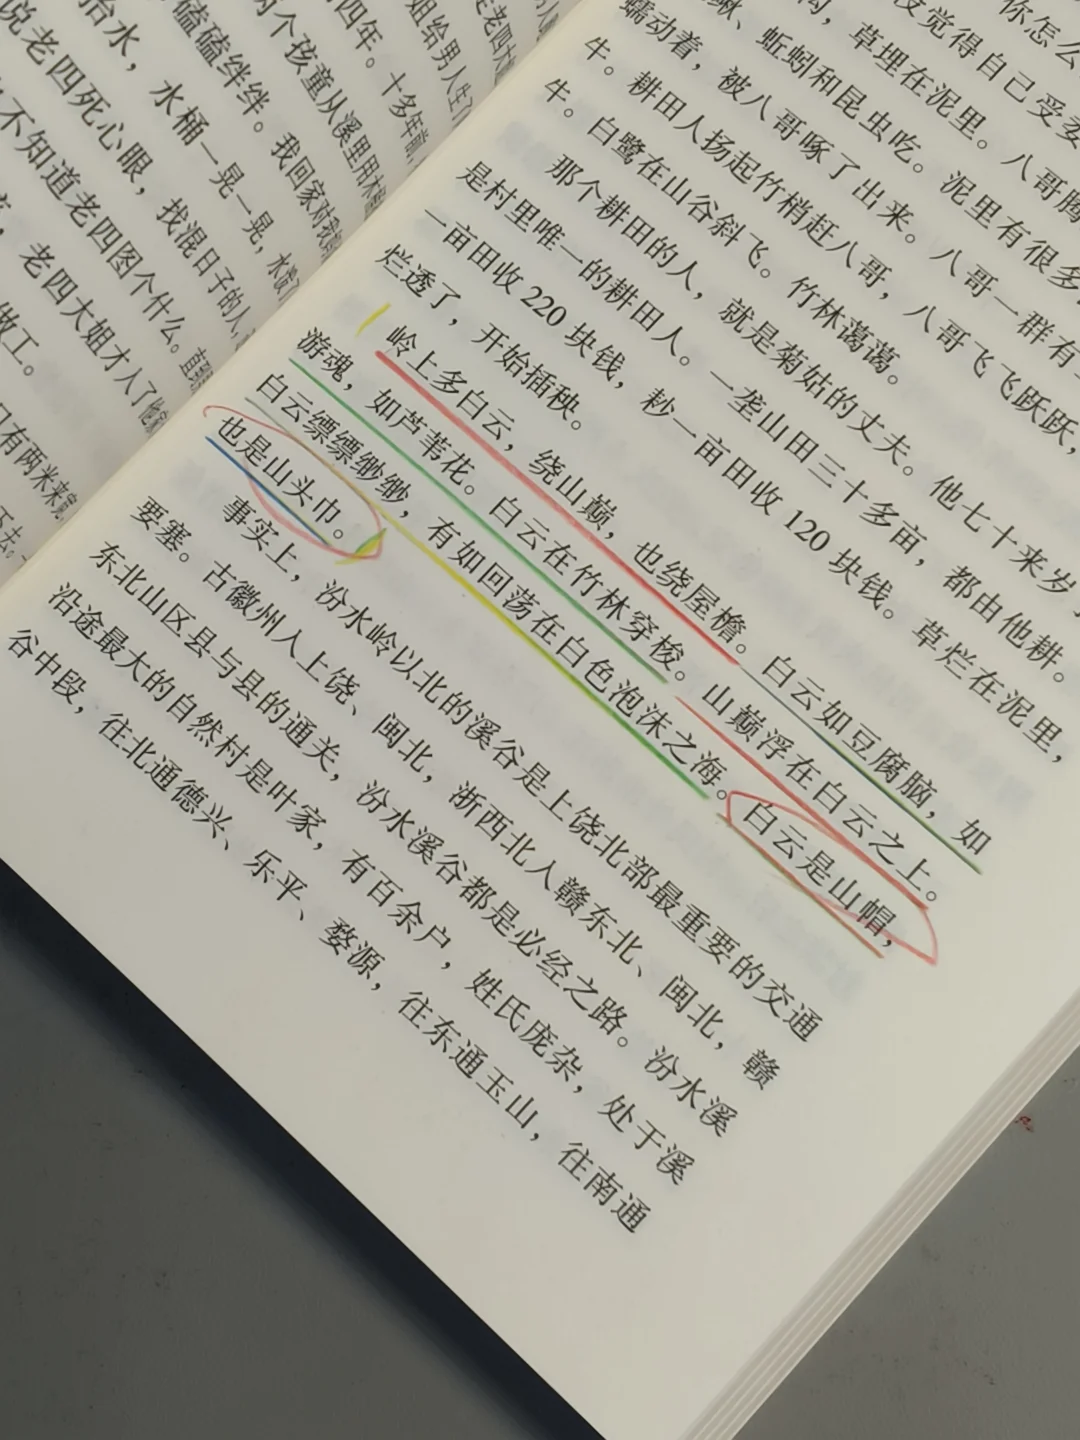 抬水，水桶一晃一晃，水常
磕磕绊绊。我回家对我
两个孩童从溪里用木桶
四年。十多年前，
姐给男人生了
说老四死心眼，找混日子的人，
不知道老四图个什么。直到
老四大姐才入了
做工。
有两米来宽
你怎么
没觉得自己受委
草埋在泥里。八哥胸
蚯蚓和昆虫吃。泥里有很多
蠕动着，被八哥啄了出来。八哥一群有
牛。耕田人扬起竹梢赶八哥，八哥飞飞跃跃，
牛。白鹭在山谷斜飞。竹林蔼蔼。
那个耕田的人，就是菊姑的丈夫。他七十来岁了
是村里唯一的耕田人。一垄山田三十多亩，都由他耕。
一亩田收 220 块钱，耖一亩田收 120 块钱。草烂在泥里，
烂透了，开始插秧。
岭上多白云，绕山巅，也绕屋檐。白云如豆腐脑，如
游魂，如芦苇花。白云在竹林穿梭。山巅浮在白云之上。
白云缥缥缈缈，有如回荡在白色泡沫之海。白云是山帽，
也是山头巾。
事实上，汾水岭以北的溪谷是上饶北部最重要的交通
要塞。古徽州人上饶、闽北，浙西北人赣东北、闽北，赣
东北山区县与县的通关，汾水溪谷都是必经之路。汾水溪
沿途最大的自然村是叶家，有百余户，姓氏庞杂，处于溪
谷中段，往北通德兴、乐平、婺源，往东通玉山，往南通